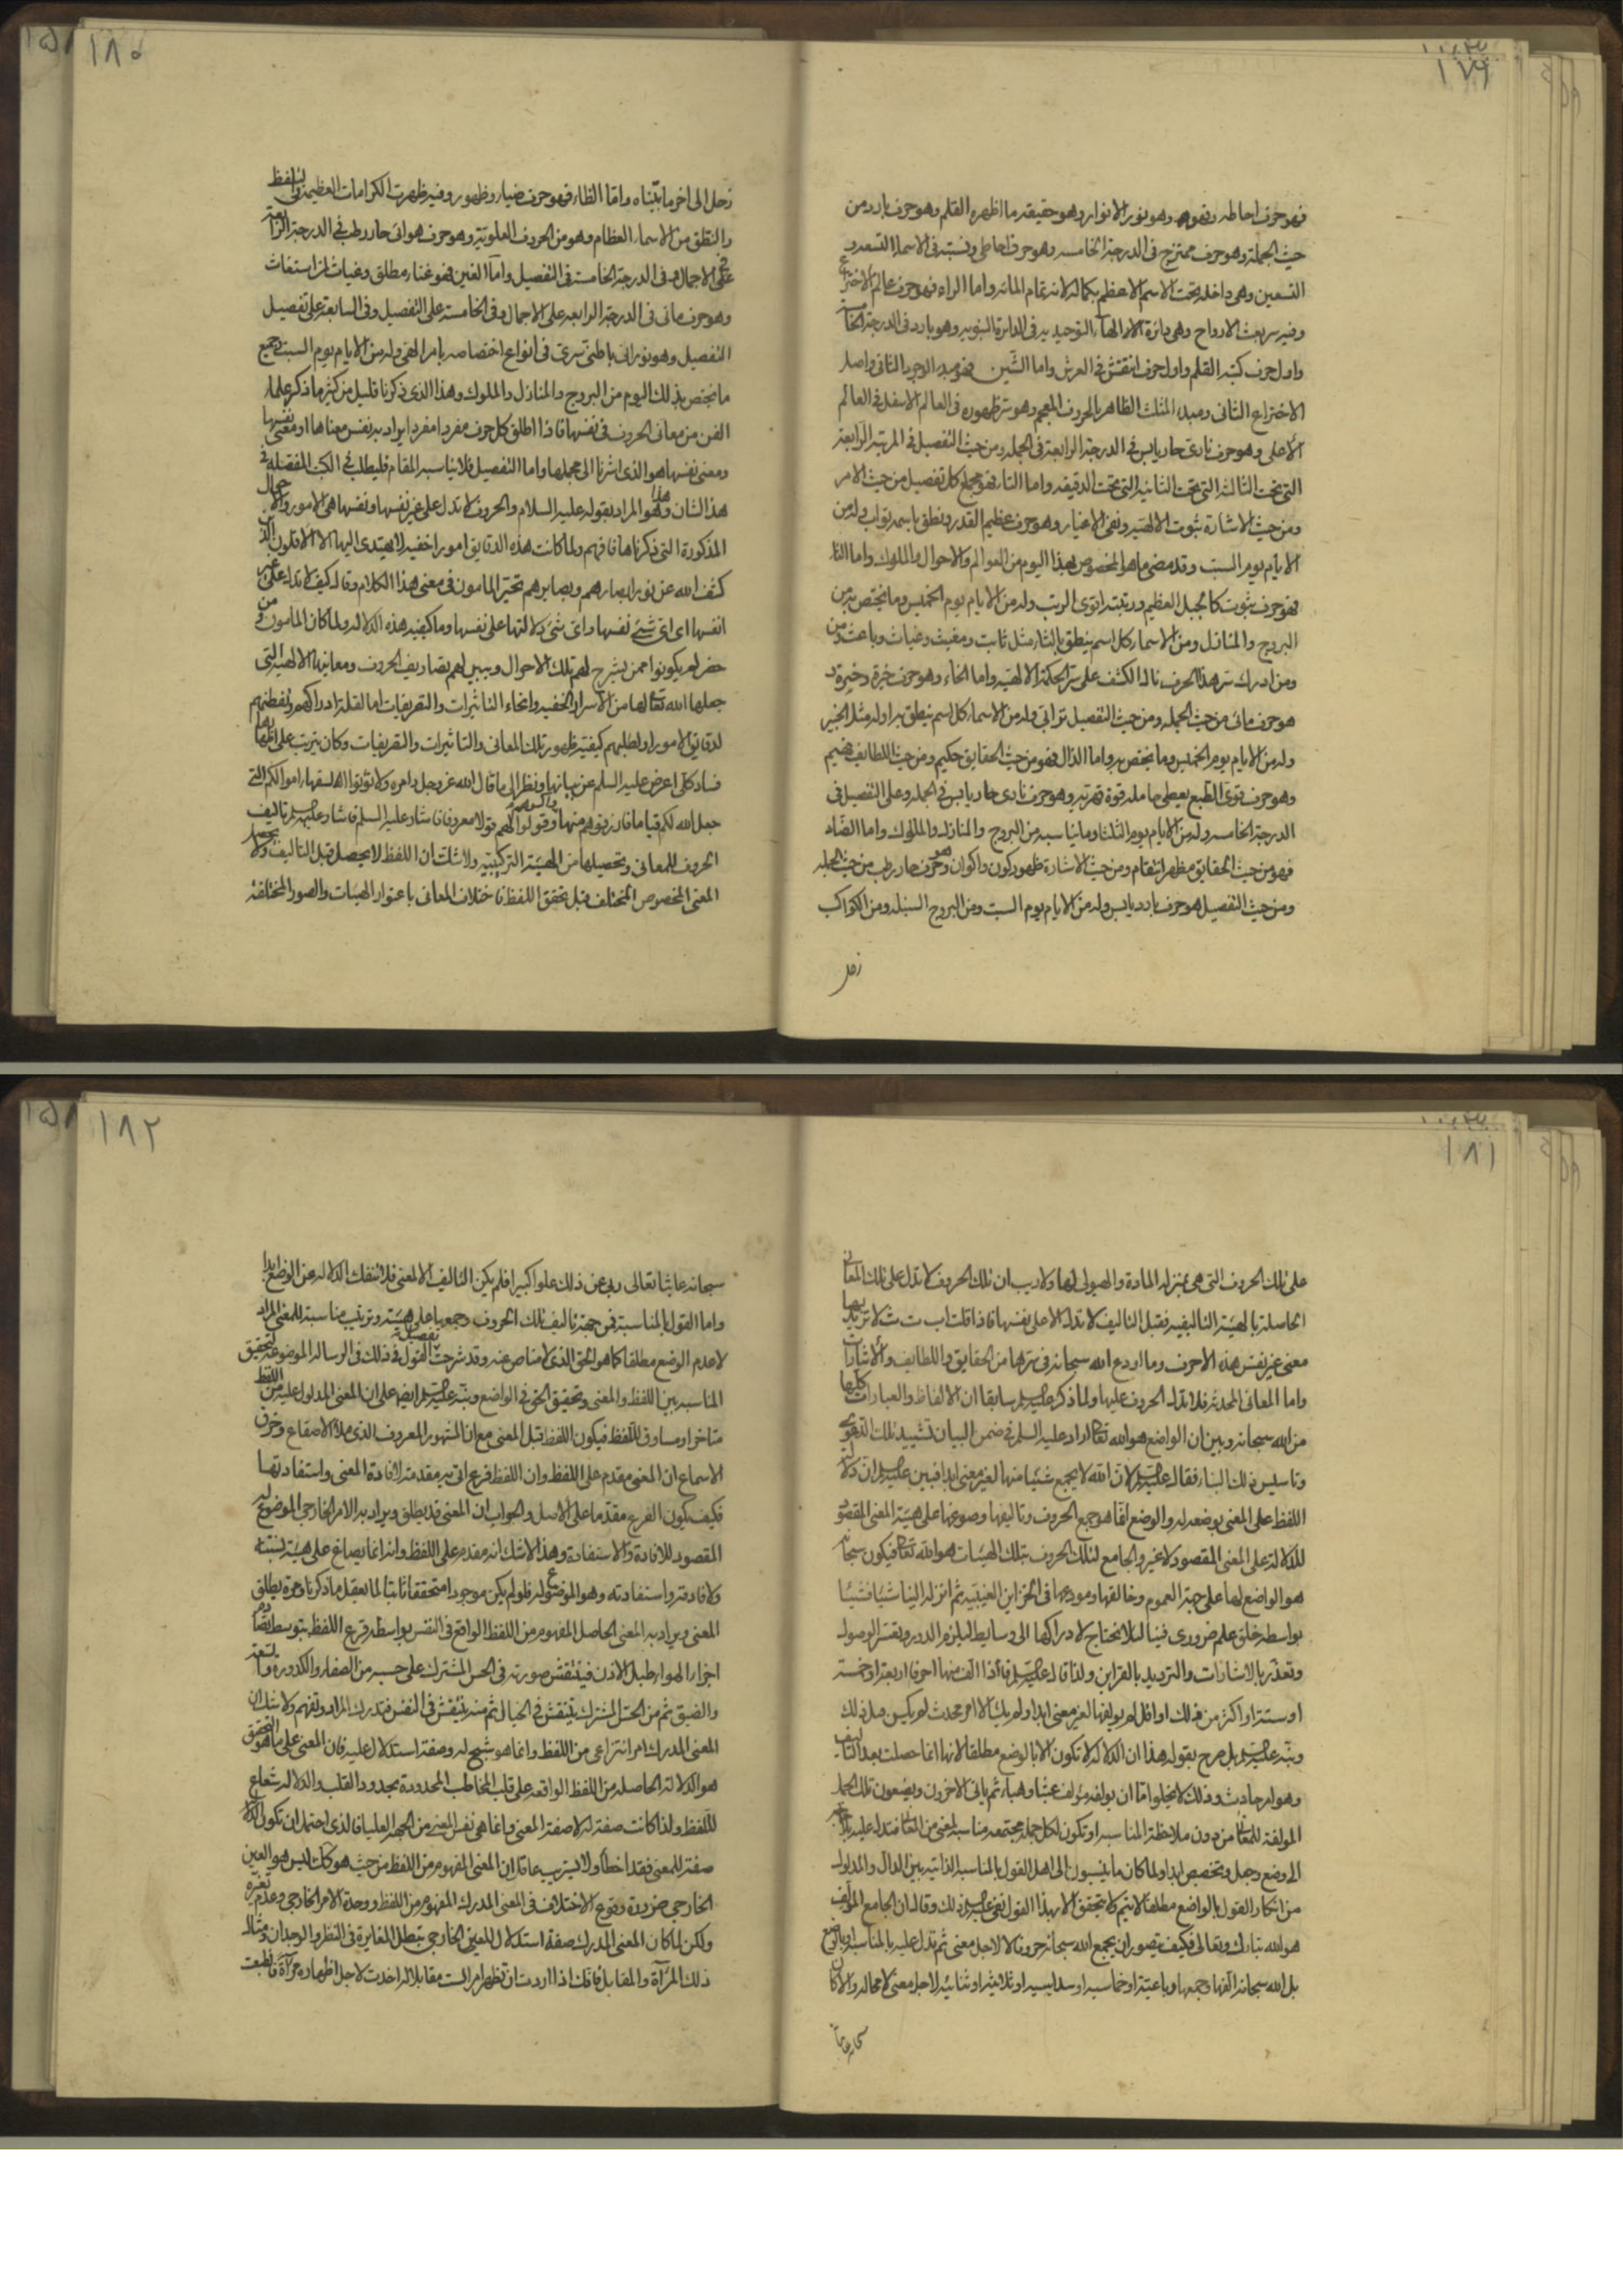 ١٧٩
فهو حرف احاطه وهو نور الانوار وهو حقيقة ما اظهره القلم وهو حرف بارد من
حيث الجملة وهو حرف ممتزج في الدرجة الخامسه وهو حرف احاطى ونسبته في الاسماء التسعه و
التسعين وهى داخله تحت الاسم الاعظم بكماله لانه تمام المائه واما الراء فهو حرف عالم الاختراع
وفيه سر بعث الارواح وهى دائرة التوحيديه في الدائرة النبويه وهو بارد في الدرجة الخامسة
واول حرف كتبه القلم واول حرف انتقش في العرش واما الشين فهو مبدء الوجود الثانى واصل
الاختراع الثانى ومبدء المثلث الظاهر بالحروف المعجم وهو سر ظهوره في العالم الاسفل في العالم
الاعلى وهو حرف نارى حار يابس في الدرجة الرابعة في الجمله ومن حيث التفصيل في المرتبه الرابعة
التى تحت الثالثه التى تحت الثانيه التى تحت الدقيقه واما التاء فهو مجمع كل تفصيل من حيث الامر
ومن حيث الاشارة ثبوت الالهيه ونفى الاغيار وهو حرف عظيم القدر ونطق باسمه تواب وله من
الايام يوم السبت وقد مضى ما هو المخصوص بهذا اليوم من العوالم والاحوال والملوك واما الثاء
فهو حرف ثبوت كالجبل العظيم ورتبته اقوى الرتب وله من الايام يوم الخميس وما يختص به من
البروج والمنازل ومن الاسماء كل اسم ينطق بالثاء مثل ثابت ومغيث وغياث وباعث ومن
ومن ادرك سر هذا الحرف نال الكشف على سر الحكمة الالهيه واما الخاء وهو حرف خيرة وخيرة و
هو حرف مائى من حيث الجمله ومن حيث التفصيل ترابى وله من الاسماء كل اسم ينطق به اوله مثل الخبير
وله من الايام يوم الخميس وما يختص به واما الذال فهو من حيث الحقايق حكيم ومن حيث اللطايف فهيم
وهو حرف قوى الطبع يعطى حامله قوة قهريه وهو حرف نارى حار يابس في الجمله وعلى التفصيل في
الدرجة الخامسه وله من الايام يوم الثلثا وما يناسبه من البروج والمنازل والملوك واما الضاد
فهو من حيث الحقايق مظهر انتقام ومن حيث الاشارة ظهور كون واكوان وهو حرف حار رطب من حيث الجمله
ومن حيث التفصيل هو حرف بارد يابس وله من الايام يوم السبت ومن البروج السنبله ومن الكواكب
زحل
١٨٠
زحل الى اخر ما بيّناه واما الظاء فهو حرف ضياء وظهور وفيه ظهرت الكرامات العظيمة والتلفظ
والنطق من الاسماء العظام وهو من الحروف العلوية وهو حرف هوائى حار رطب في الدرجة الرابعة
على الاجمال وفى الدرجة الخامسة في التفصيل واما الغين فهو غناء مطلق وغياث لمن استغاث
وهو حرف مائى في الدرجة الرابعه على الاجمال وفى الخامسة على التفصيل وفى السابعة على تفصيل
التفصيل وهو نورانى باطنى سرىّ في انواع اختصاصه بامر الهى وله من الايام يوم السبت وجميع
ما يختص بذلك اليوم من البروج والمنازل والملوك وهذا الذى ذكرنا قليل من كثير ما ذكره علماء
الفن من معانى الحروف في نفسها فاذا اطلق كل حرف مفردا مفردا يراد به نفس معناها او معنى نفسها
ومعنى نفسها هو الذى اشرنا الى مجملها واما التفصيل فلا يناسبه المقام فليطلب في الكتب المفصله في
هذا الشان وهذا هو المراد بقوله عليه السلام والحروف لا تدل على غير نفسها ونفسها هى الامور والاحوال
المذكورة التى ذكرناها فافهم ولما كانت هذه الدقايق امورا خفيه لا يهتدى اليها الا الاقلون الذين
كشف الله عن نور ابصارهم وبصايرهم تحير المامون في معنى هذا الكلام وقال كيف لا تدل على غير
انفسها اى اىّ شئ نفسها واىّ شئ دلالتها على نفسها وما كيفيه هذه الدلاله ولما كان المامون ومن
حضر لم يكونوا ممن يشرح لهم تلك الاحوال ويبيّن لهم تصاريف الحروف ومعانيها الالهيه التى
جعلها الله تعالى لها من الاسرار الخفيه وانحاء التاثيرات والتقريفات اما لقلة ادراكهم وتفطنهم
لدقايق الامور او لطلبهم كيفية ظهور تلك المعانى والتاثيرات والتقريفات وكان يترتب على اظهارها
فساد كلى اعرض عليه السلم عن بيانها ونظر الى ما قال الله عز وجل وامره ولا تؤتوا السفهاء اموالكم التى
جعل الله لكم قياما فارزقوهم منها واكسوهم وقولوا لهم قولا معروفا فاشار عليه السلم الى تاليف
الحروف للمعانى وتحصيلها من الهيئة التركيبيه ولا شك ان اللفظ لا يحصل قبل التاليف ولا يحصل
المعنى المخصوص المختلف قبل تحقق اللفظ فاختلاف المعانى باعتوار الهيئات والصور المختلفة
١٨١
على تلك الحروف التى هى بمنزلة المادة والهيولى لها ولا ريب ان تلك الحروف لا تدل على تلك المعانى
الحاصلة بالهيئة التاليفيه فقبل التاليف لا تدل الا على نفسها فاذا قلت اب ت ث لا تريد بها
معنى غير نفس هذه الاحرف وما اودع الله سبحانه في سرها من الحقايق واللطايف والاشارات
واما المعانى المحدثه فلا تدل الحروف عليها ولما ذكر عليه السلم سابقا ان الالفاظ والعبارات كلها
من الله سبحانه وبين ان الواضع هو الله تعالى اراد عليه السلم في ضمن البيان تشييد تلك الدعوى
وتاسيس ذلك البناء فقال عليه السلم لان الله لا يجمع شيئا منها لغير معنى ابدا فبين عليه السلم ان دلالة
اللفظ على المعنى بوضعه له والوضع انما هو جمع الحروف وتاليفها وصوغها على هيئة المعنى المقصود
للدلالة على المعنى المقصود لا غير والجامع لتلك الحروف بتلك الهيئات هو الله تعالى فيكون سبحانه
هو الواضع لها على جهة العموم وخالقها ومودعها في الخزاين الغيبيه ثم انزله الينا شيئا فشيئا
بواسطه خلق علم ضرورى فينا لئلا نحتاج لادراكها الى وسايط فيلزم الدور وتعسر الوصول
وتعذر بالاشارات والترديد بالقراين ولذا قال عليه السلم فاذا الّف منها احرفا اربعة او خمسة
او ستة او اكثر من ذلك او اقل لم يولفها لغير معنى ابدا ولم يك الا لامر محدث لم يكن قبل ذلك
ونبّه عليه السلم بل صرح بقوله هذا ان الدلاله لا تكون الا بالوضع مطلقا لانها انما حصلت بعد التاليف
وهو امر حادث وذلك لا يخلوا اما ان يولفه مؤلف عبثا وهباء ثم ياتى الاخرون ويضعون تلك الجمل
المولفة للمعانى من دون ملاحظة المناسبه او تكون لكل جمله مجتمعه مناسبه لمعنى من المعانى فتدل عليه بلا
الى وضع وجعل وتخصيص ابدا ولما كان ما ينسبون الى اهل القول بالمناسبه الذاتيه بين الدال والمدلول
من انكار القول بالواضع مطلقا لا يتم ولا يتحقق الا بهذا القول نفى عليه السلم ذلك وقال ان الجامع المؤلف
هو الله تبارك وتعالى فكيف يتصور ان يجمع الله سبحانه حروفا لا لاجل معنى ثم تدل عليه بالمناسبه او بالوضع
بل الله سبحانه الفها وجمعها رباعية او خماسيه او سداسيه او ثلاثيه او ثنائيه لاجل معنى لا محاله والا كان
سبحانه عابثا
١٨٢
سبحانه عابثا تعالى ربى عن ذلك علوا كبيرا فلم يكن التاليف الا لمعنى فلا تنفك الدلاله عن الوضع ابدا
واما القول بالمناسبة فمن جهة تاليف تلك الحروف وجمعها على هيئة وترتيب مناسبة للمعنى المراد
لا عدم الوضع مطلقا كما هو الحق الذى لا مناص عنه وقد شرحت تفصيل القول في ذلك في الرساله الموضوعة لتحقيق
المناسبه بين اللفظ والمعنى وتحقيق الحق في الواضع ونبّه عليه السلم ايضا على ان المعنى المدلول عليه من اللفظ
متاخر او مساوق للفظ فيكون اللفظ قبل المعنى مع ان المشهور المعروف الذى ملأ الاصقاع وخرق
الاسماع ان المعنى مقدم على اللفظ وان اللفظ فرع اتى به مقدمة لافادة المعنى واستفادتها
فكيف يكون الفرع مقدما على الاصل والجواب ان المعنى قد يطلق ويراد به الامر الخارجى الموضوع له
المقصود للافادة والاستفادة وهذا لا شك انه مقدم على اللفظ وانه انما يصاغ على هيئة نسبته
ولافادته واستفادته وهو الموضوع له فلو لم يكن موجودا متحققا ثابتا لما يعقل ما ذكرنا ومرة يطلق
المعنى ويراد به المعنى الحاصل المفهوم من اللفظ الواقع في النفس بواسطة قرع اللفظ بتوسط تصادم
اجزاء الهواء طبل الاذن فينتقش صورته في الحس المشترك على حسبه من الصفاء والكدورة والسعة
والضيق ثم من الحس المشترك ينتقش في الخيال ثم منه ينتقش في النفس فتدرك المراد وتفهم ولا شك ان
المعنى المدرك امر انتزاعى من اللفظ وانما هو شبح له وصفة استدلال عليه فان المعنى على ما هو التحقيق
هو الدلاله الحاصله من اللفظ الواقعه على قلب المخاطب المحدودة بحدود القلب والدلاله شعاع
للفظ ولذا كانت صفة له لا صفة المعنى وانما هى نفس المعنى من الجهة العليا فالذى احتمل ان تكون الدلالة
صفة للمعنى فقد اخطأ ولا يستريب عاقل ان المعنى المفهوم من اللفظ من حيث هو كك ليس هو العين
الخارجى ضرورة وقوع الاختلاف في المعنى المدرك المفهوم من اللفظ ووحدة الامر الخارجى وعدم تغيره
ولكن لما كان المعنى المدرك صفة استدلال للمعنى الخارجى تبطل المغايرة في النظر والوجدان ومثال
ذلك المرآة والمقابل فانك اذا اردت ان تظهر امرا لست مقابلا له اخذت لاجل اظهاره مرآة فانطبعت